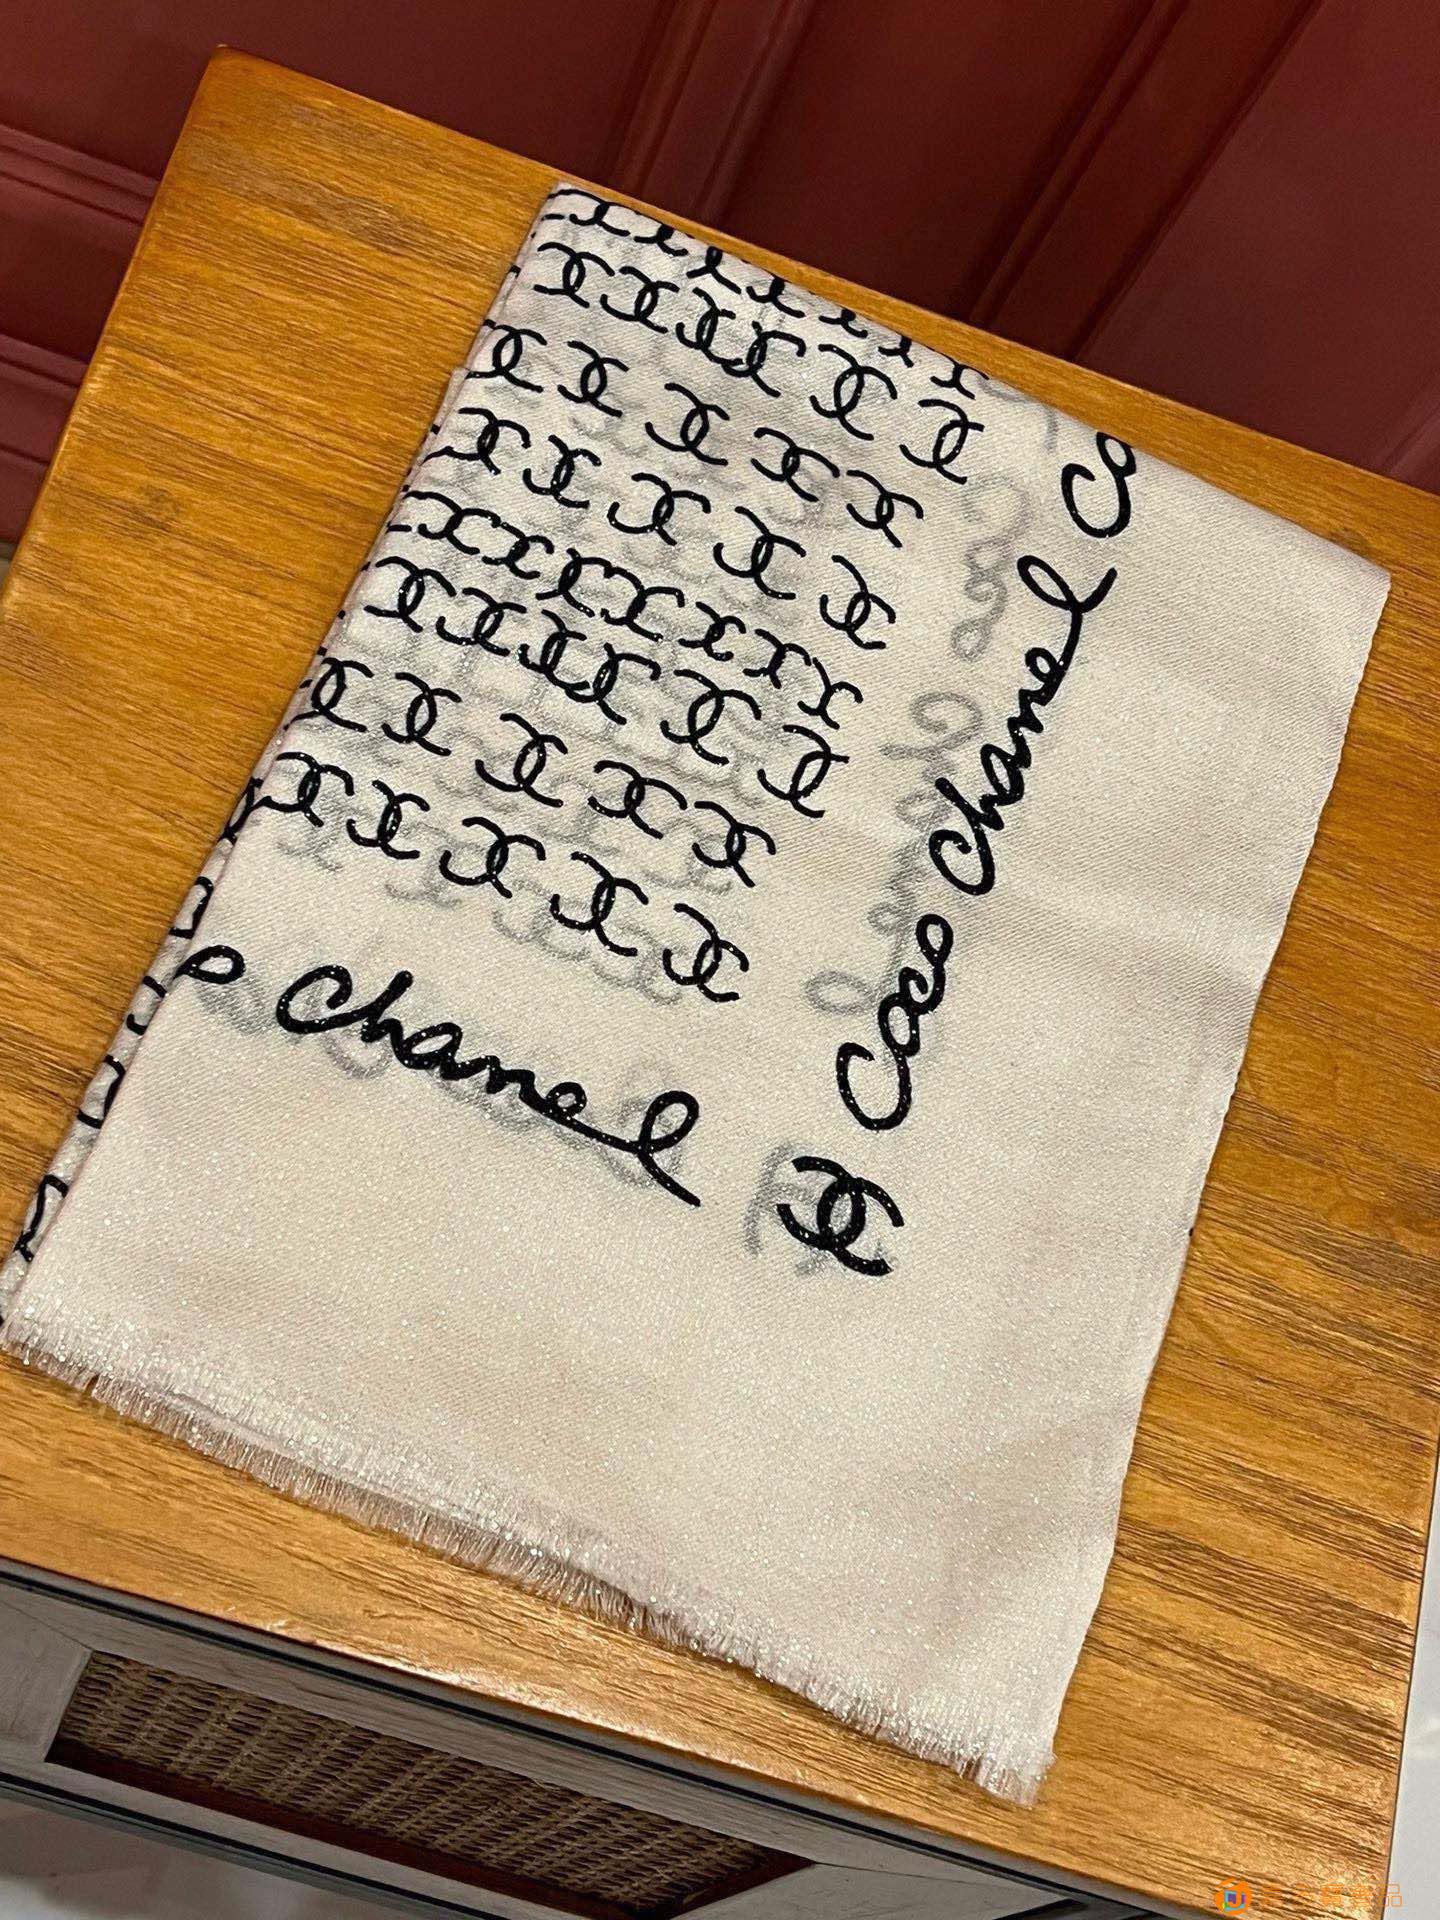 co
coco chanel
o chanel